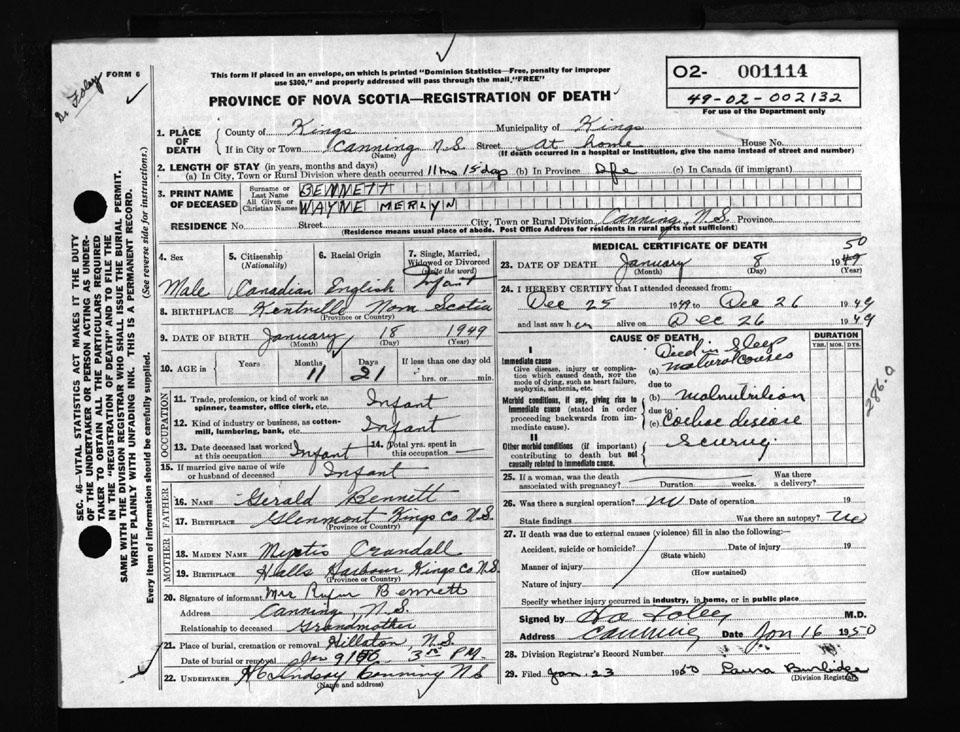 Dr. Foley
FORM 6
This form if placed in an envelope, on which is printed "Dominion Statistics—Free, penalty for improper
use $300," and properly addressed will pass through the mail "FREE"
PROVINCE OF NOVA SCOTIA—REGISTRATION OF DEATH
02- 001114
49-02-002132
For use of the Department only
SEC. 46—VITAL STATISTICS ACT MAKES IT THE DUTY
OF THE UNDERTAKER OR PERSON ACTING AS UNDER-
TAKER TO OBTAIN ALL THE PARTICULARS REQUIRED
IN THE "REGISTRATION OF DEATH" AND TO FILE THE
SAME WITH THE DIVISION REGISTRAR WHO SHALL ISSUE THE BURIAL PERMIT.
WRITE PLAINLY WITH UNFADING INK. THIS IS A PERMANENT RECORD.
Every item of information should be carefully supplied. (See reverse side for instructions.)
1. PLACE OF DEATH
County of Kings Municipality of Kings
If in City or Town Canning N.S Street At home House No.
(Name) (If death occurred in a hospital or institution, give the name instead of street and number)
2. LENGTH OF STAY (in years, months and days)
(a) In City, Town or Rural Division where death occurred 11 mo 15 days (b) In Province Life (c) In Canada (if immigrant)
3. PRINT NAME OF DECEASED
Surname or Last Name BENNETT
All Given or Christian Names WAYNE MERLYN
RESIDENCE No. Street City, Town or Rural Division Canning, N.S. Province
(Residence means usual place of abode. Post Office Address for residents in rural parts not sufficient)
4. Sex 5. Citizenship (Nationality) 6. Racial Origin 7. Single, Married, Widowed or Divorced (write the word)
Male Canadian English Infant
8. BIRTHPLACE Kentville Nova Scotia
(Province or Country)
9. DATE OF BIRTH January 18 1949
(Month) (Day) (Year)
10. AGE in Years Months 11 Days 21 If less than one day old hrs. or min.
OCCUPATION
11. Trade, profession, or kind of work as
spinner, teamster, office clerk, etc. Infant
12. Kind of industry or business, as cotton-
mill, lumbering, bank, etc. Infant
13. Date deceased last worked at this occupation Infant 14. Total yrs. spent in this occupation —
15. If married give name of wife or husband of deceased Infant
FATHER
16. NAME Gerald Bennett
17. BIRTHPLACE Glenmont Kings Co N.S.
(Province or Country)
MOTHER
18. MAIDEN NAME Crandall
19. BIRTHPLACE Halls Harbour Kings Co N.S.
(Province or Country)
20. Signature of informant Mrs Rufus Bennett
Address Canning, N.S.
Relationship to deceased Grandmother
21. Place of burial, cremation or removal Hillaton N.S.
Date of burial or removal Jan 9/50 3 P.M.
22. UNDERTAKER Lindsay Canning N.S
(Name and address)
MEDICAL CERTIFICATE OF DEATH
23. DATE OF DEATH January 8 1949 50
(Month) (Day) (Year)
24. I HEREBY CERTIFY that I attended deceased from:
Dec 25 1949 to Dec 26 1949
and last saw h alive on Dec 26 1949
CAUSE OF DEATH DURATION
YRS. MOS. DYS.
I
Immediate cause
Give disease, injury or complica-
tion which caused death, not the
mode of dying, such as heart failure,
asphyxia, asthenia, etc.
(a) Died in Sleep
natural causes
due to
Morbid conditions, if any, giving rise to
immediate cause (stated in order
proceeding backwards from im-
mediate cause).
(b) malnutrition
due to
(c) Coeliac disease
II
Other morbid conditions (if important)
contributing to death but not
causally related to immediate cause.
Scurvy
286.0
25. If a woman, was the death associated with pregnancy? Duration weeks. Was there a delivery?
26. Was there a surgical operation? no Date of operation 19
State findings Was there an autopsy? no
27. If death was due to external causes (violence) fill in also the following:—
Accident, suicide or homicide? Date of injury 19
(State which)
Manner of injury
(How sustained)
Nature of injury
Specify whether injury occurred in industry, in home, or in public place
Signed by Foley M.D.
Address Canning Date Jan 16 1950
28. Division Registrar's Record Number
29. Filed Jan. 23 1950 Laura Burbidge
(Division Registrar)